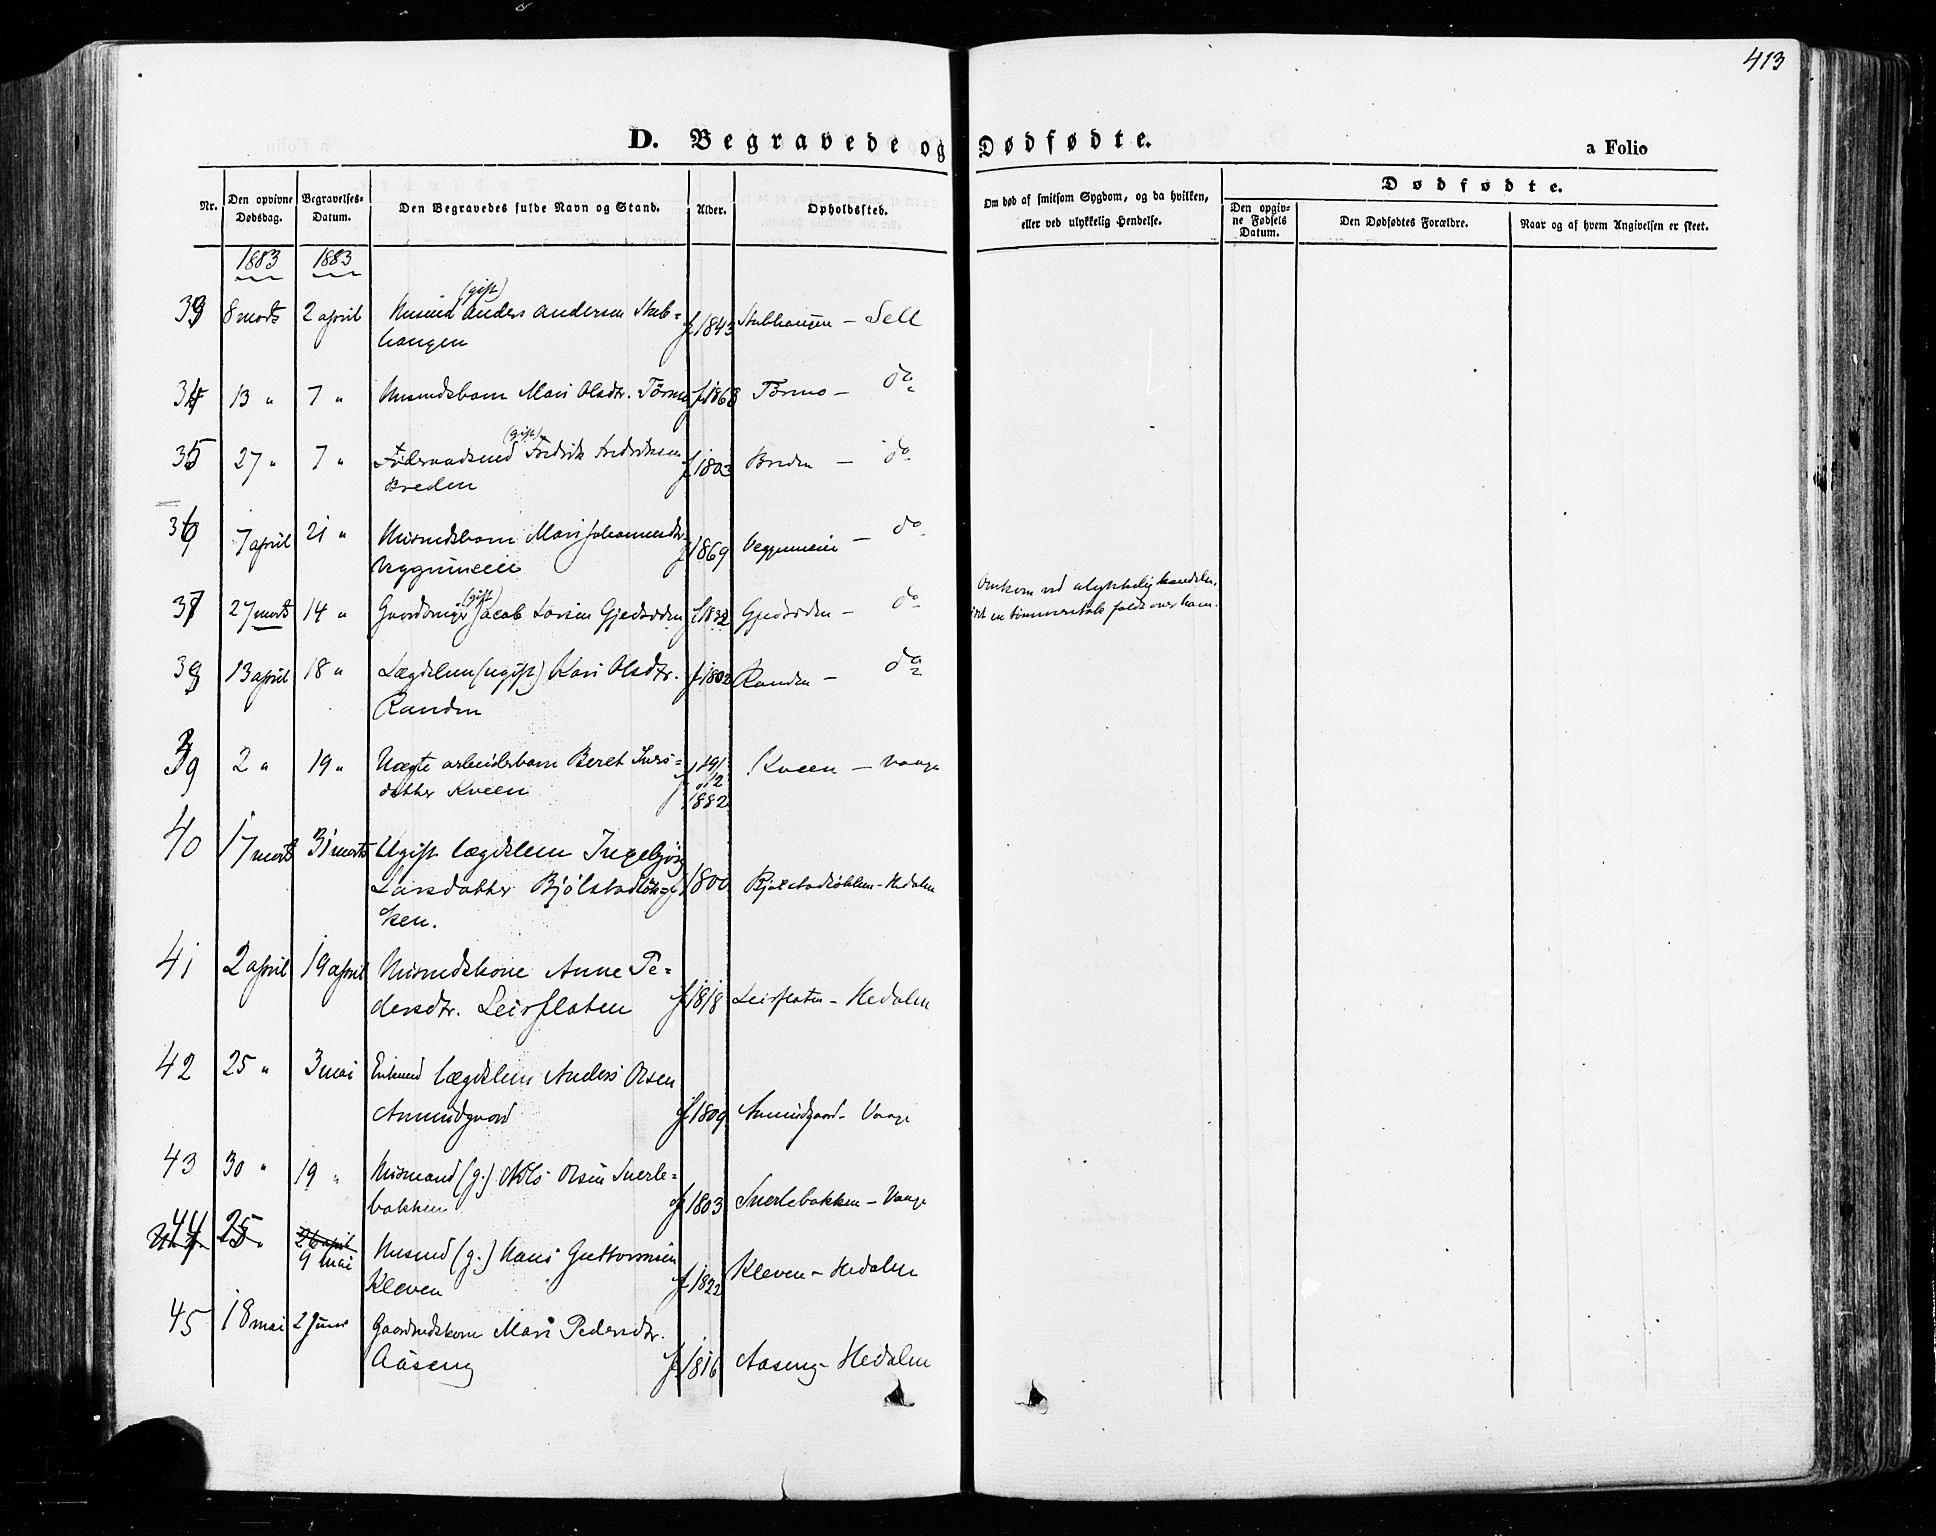 413
D. Begravede og Dødfødte.
a Folio
Nr.
Den opgivne Dødsdag.
Begravelses-Datum.
Den Begravedes fulde Navn og Stand.
Alder.
Opholdssted.
Om død af smitsom Sygdom, og da hvilken, eller ved ulykkelig Hendelse.
Dødfødte.
Den opgivne Fødsels Datum.
Den Dødfødtes Forældre.
Naar og af hvem Angivelsen er skeet.
1883 1883
(gift)
33 8 marts 2 april Husmd Anders Andersen Stub=
haugen f 1843 Stubhaugen – Sell
34 13 " 7 " Husmdsbarn Mari Olsdtr. Törmo f 1868 Törmo – do
(gift)
35 27 " 7 " Föderaadsmd Fredrik Fredriksen
Breden f 1803 Breden – do
36 7 april 21 " Husmdsbarn Mari Johannesdtr.
Veggumeie f 1869 Veggumeie – do
(gift)
37 27 marts 14 " Gaardbruger Jacob Larsen Gjedsöden f 1832 Gjedsöden – do
Omkom ved ulykkelig handelse,
idet en tömmerstok faldt over ham.
39 13 april 18 " Lægdslem (ugift) Kari Olsdtr.
Randen f 1802 Randen – do
39 2 " 19 " Uægte arbeiderbarn Beret Ivers=
datter Kveen f 19/12 1882 Kveen – Vaage
40 17 marts 31 marts Ugift lægdslem Ingebjörg
Larsdatter Bjölstadlök=
ken. f 1800 Bjölstadlökken – Hedalen
41 2 april 19 april Husmdskone Anne Pe=
dersdtr. Leirflaten f 1818 Leirflaten – Hedalen
42 25 " 3 mai Enkemd lægdslem Anders Olsen
Aamundgaard f 1809 Aamundgaard – Vaage
43 30 " 19 " Husmand (g.) Nils Olsen Snerle=
bakken f 1803 Snerlebakken – Vaage
44 25 " 26 april
9 mai Husmd (g.) Hans Guttormsen
Kleven f 1822 Kleven – Hedalen
45 18 mai 2 Juni Gaardmdskone Mari Pedersdtr.
Aaseng f 1816 Aaseng – Hedalen